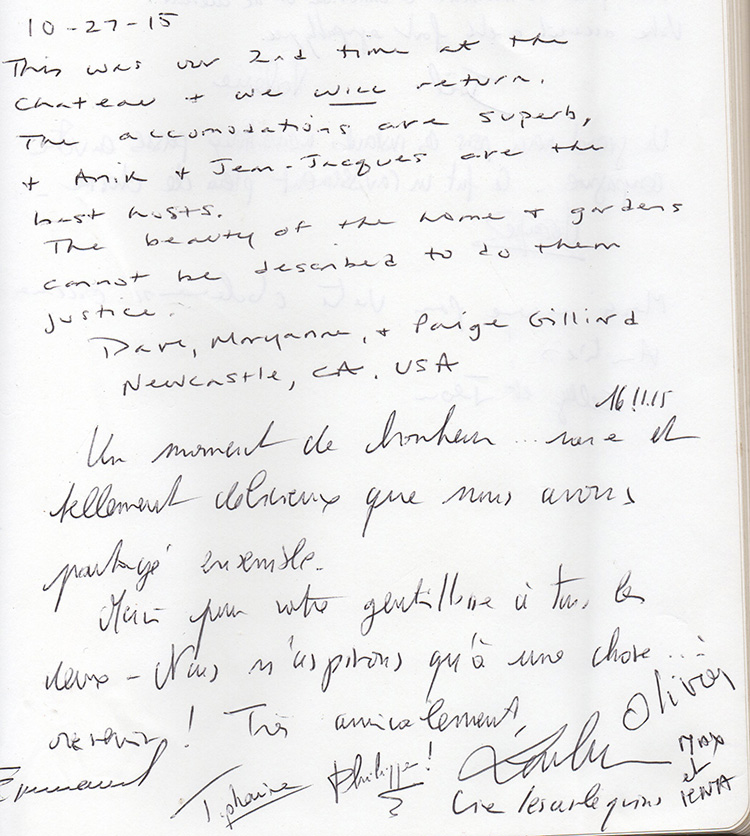 10-27-15
This was our 2nd time at the
Chateau + we will return.
The accomodations are superb,
+ Anik + Jean-Jacques are the
best hosts.
The beauty of the home + gardens
cannot be described to do them
justice.
Dave, Maryanne, + Paige Gilliard
Newcastle, CA. USA
16.11.15
Un moment de bonheur... rare et
tellement délicieux que nous avons
partagé ensemble.
Merci pour votre gentillesse à tous les
deux - Nous n'aspirons qu'à une chose...:
revenir ! Très amicalement,
Olivier
Emmanuel
Tiphaine Philippe !
Max
et
Cie les arlequins